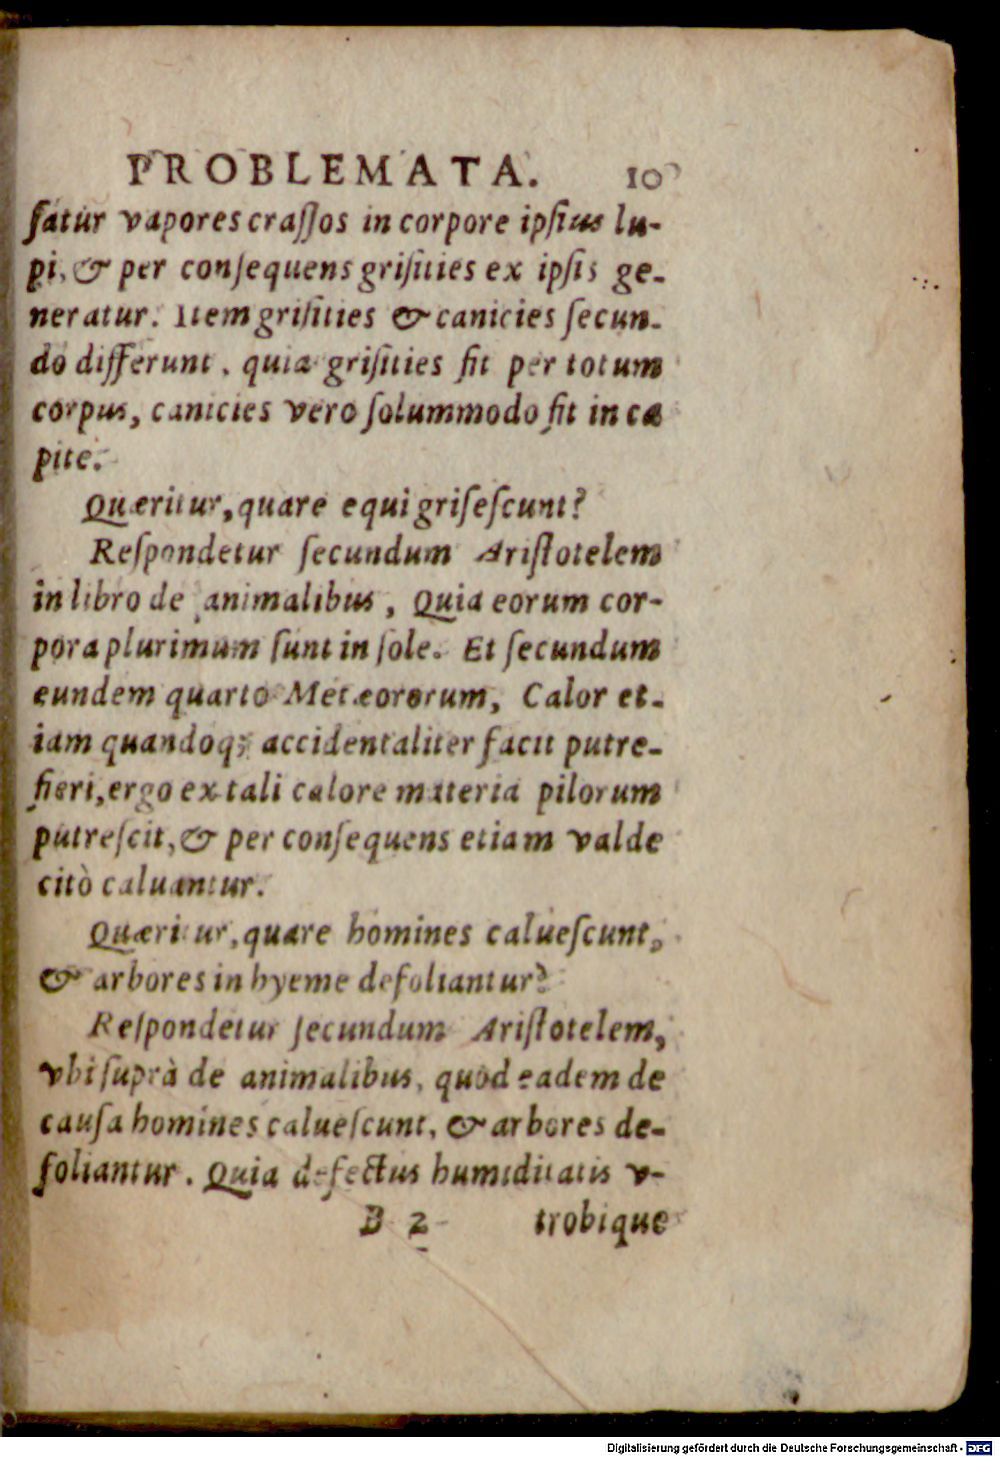 PROBLEMATA. 10
ſatur vapores craſſos in corpore ipſius lu-
pi, & per conſequens griſities ex ipſis ge-
neratur. Item griſities & canicies ſecun-
do differunt, quia griſities fit per totum
corpus, canicies vero ſolummodo fit in ca
pite.
Quæritur, quare equi griſeſcunt?
Reſpondetur ſecundum Ariſtotelem
in libro de animalibus, Quia eorum cor-
pora plurimum ſunt in ſole. Et ſecundum
eundem quarto Meteororum, Calor et-
iam quandoq; accidentaliter facit putre-
fieri, ergo ex tali calore materia pilorum
putreſcit, & per conſequens etiam valde
citò caluantur.
Quæritur, quare homines calueſcunt,
& arbores in hyeme defoliantur?
Reſpondetur ſecundum Ariſtotelem,
vbi ſuprà de animalibus, quòd eadem de
cauſa homines calueſcunt, & arbores de-
foliantur. Quia defectus humiditatis v-
B 2 trobique
Digitalisierung gefördert durch die Deutsche Forschungsgemeinschaft - DFG